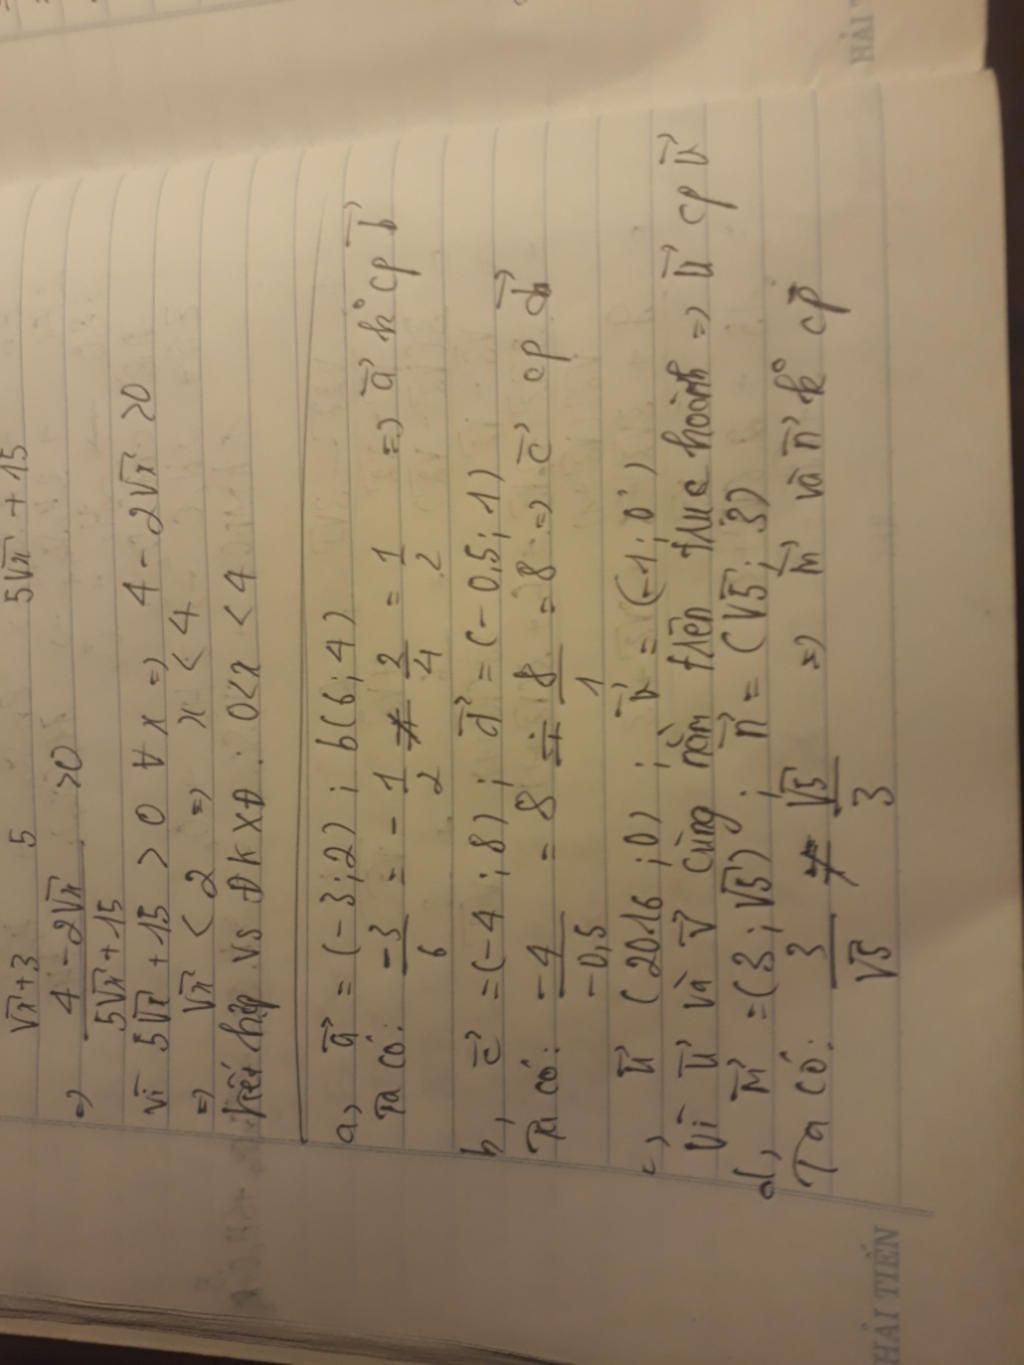 √x+3 5 5√x + 15
=> 4 - 2√x / 5√x + 15 > 0
Vì 5√x + 15 > 0 ∀ x => 4 - 2√x > 0
=> √x < 2 => x < 4
kết hợp vs ĐKXĐ : 0 < x < 4
a, a⃗ = (-3; 2) ; b(6; 4)
Ta có: -3/6 = -1/2 ≠ 2/4 = 1/2 => a⃗ k° cp b⃗
b, c⃗ = (-4 ; 8) ; d⃗ = (-0,5; 1)
Ta có: -4/-0,5 = 8 ; 8/1 = 8 => c⃗ cp d⃗
c, u⃗ (2016 ; 0) ; v⃗ = (-1; 0)
Vì u⃗ và v⃗ cùng nằm trên trục hoành => u⃗ cp v⃗
d, m⃗ = (3; √5) ; n⃗ = (√5; 3)
Ta có: 3/√5 ≠ √5/3 => m⃗ và n⃗ k° cp
HẢI TIẾN
HẢI T